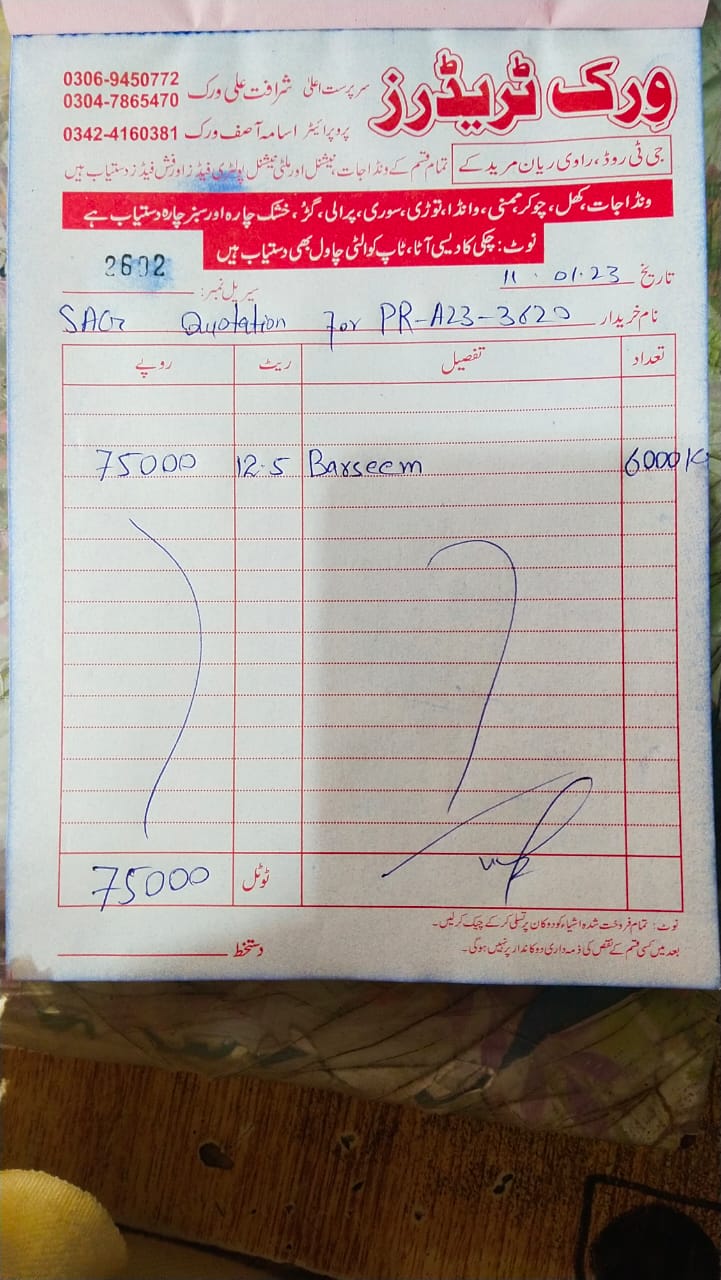 ورک ٹریڈرز
سرپرست اعلیٰ شرافت علی ورک 0306-9450772
0304-7865470
پروپرائیٹر اسامہ آصف ورک 0342-4160381
جی ٹی روڈ، راوی ریان مریدکے
تمام قسم کے ونڈا جات نیشنل اور ملٹی نیشنل پولٹری فیڈز اور فش فیڈز دستیاب ہیں
ونڈا جات، کھل، چوکر، ممنی، وانڈا، توڑی، سوری، پرالی، گڑ، خشک چارہ اور سبز چارہ دستیاب ہے
نوٹ: چکی کا دیسی آٹا، ٹاپ کوالٹی چاول بھی دستیاب ہیں
تاریخ 11.01.23
سیریل نمبر: 2602
نام خریدار SAGr Quotation For PR-A23-3620
تعداد تفصیل ریٹ روپے
6000 Kg Barseem 12.5 75000
ٹوٹل 75000
نوٹ: تمام فروخت شدہ اشیاء کو دوکان پر تسلی کر کے چیک کر لیں۔
بعد میں کسی قسم کے نقص کی ذمہ داری دوکاندار پر نہیں ہو گی۔
دستخط